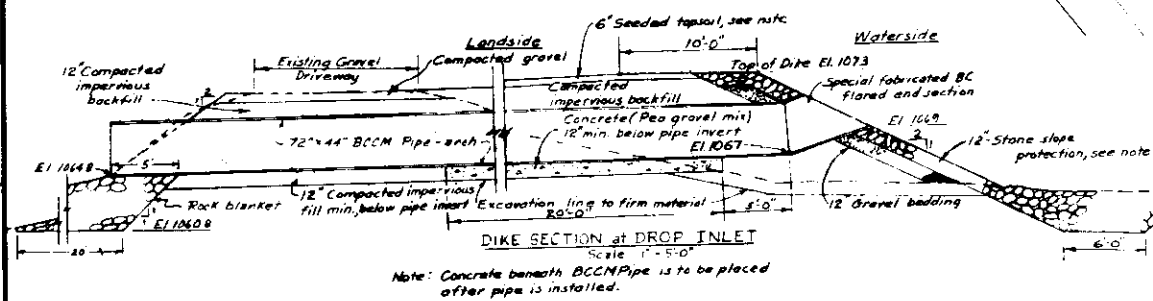 6" Seeded topsoil, see note
Landside
Waterside
10'-0"
Existing Gravel
Driveway
Compacted gravel
Top of Dike El. 1073
12" Compacted
impervious
backfill
Special fabricated BC
flared end section
Compacted
impervious backfill
2
Concrete (Pea gravel mix)
12" min. below pipe invert
El 1069
72" x 44" BCCM Pipe-arch
El. 1067
2
1
12"-Stone slope
protection, see note
El 1064.8
5'
Rock blanket
12" Compacted impervious
fill min., below pipe invert
Excavation line to firm material
12" Gravel bedding
1
El 1060.8
20'-0"
5'-0"
20
6'-0"
DIKE SECTION at DROP INLET
Scale 1" - 5'-0"
Note: Concrete beneath BCCMPipe is to be placed
after pipe is installed.